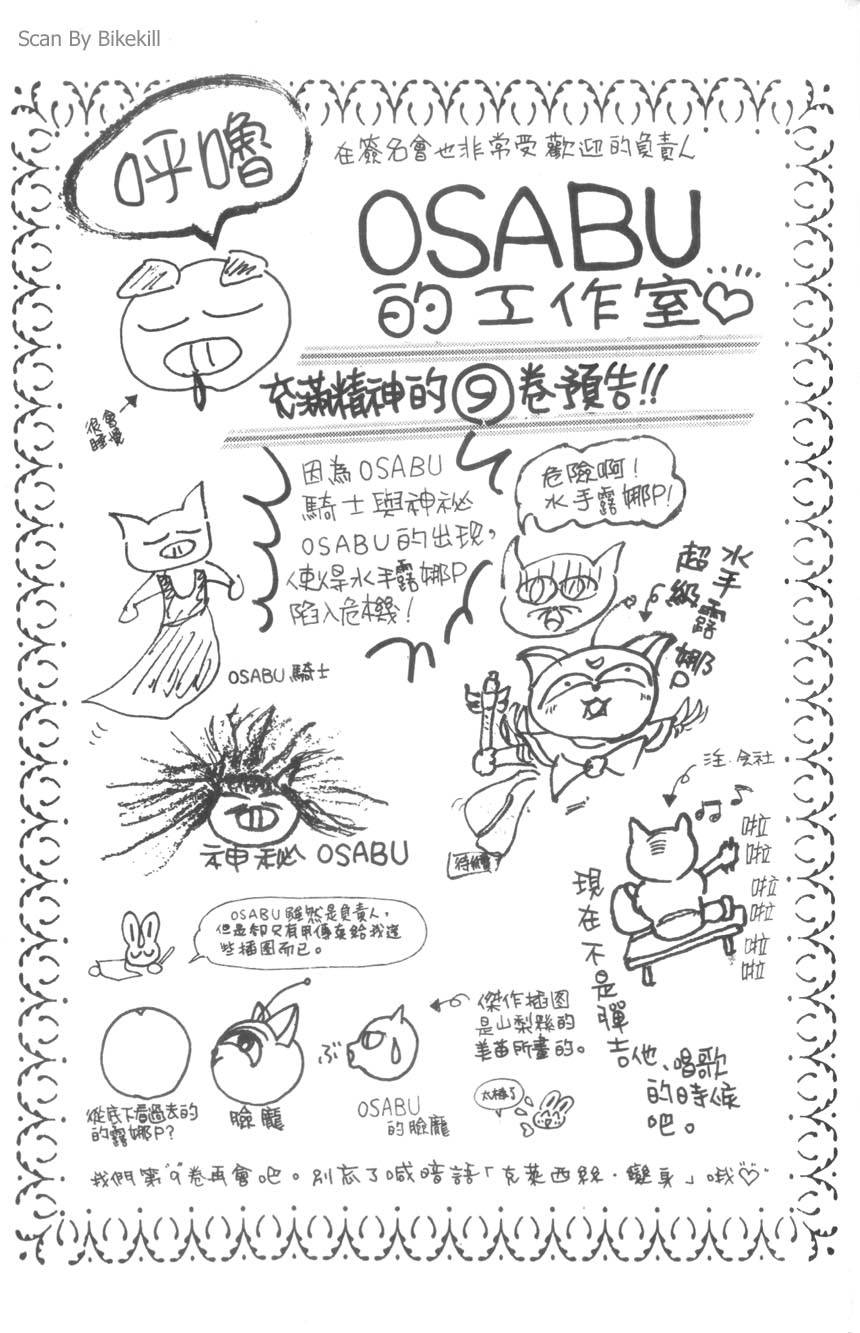 Scan By Bikekill
呼嚕
在簽名會也非常受歡迎的負責人
OSABU
的工作室♡
很會
睡覺
充滿精神的⑨卷預告!!
因為OSABU
騎士與神祕
OSABU的出現,
使得水手露娜P
陷入危機!
危險啊!
水手露娜P!
水手露娜P
超級
OSABU騎士
神祕OSABU
待續
注.会社
啦
啦
啦
啦
啦
啦
現在不是彈吉他、唱歌
的時候
吧。
OSABU雖然是負責人,
但是卻只有用傳真給我這
些插图而已。
傑作插图
是山梨縣的
美苗所畫的。
ぶ
從底下看過去的
的露娜P?
臉龐
OSABU
的臉龐
太棒了
我們第9卷再會吧。別忘了喊暗語「克萊西絲·變身」哦♡